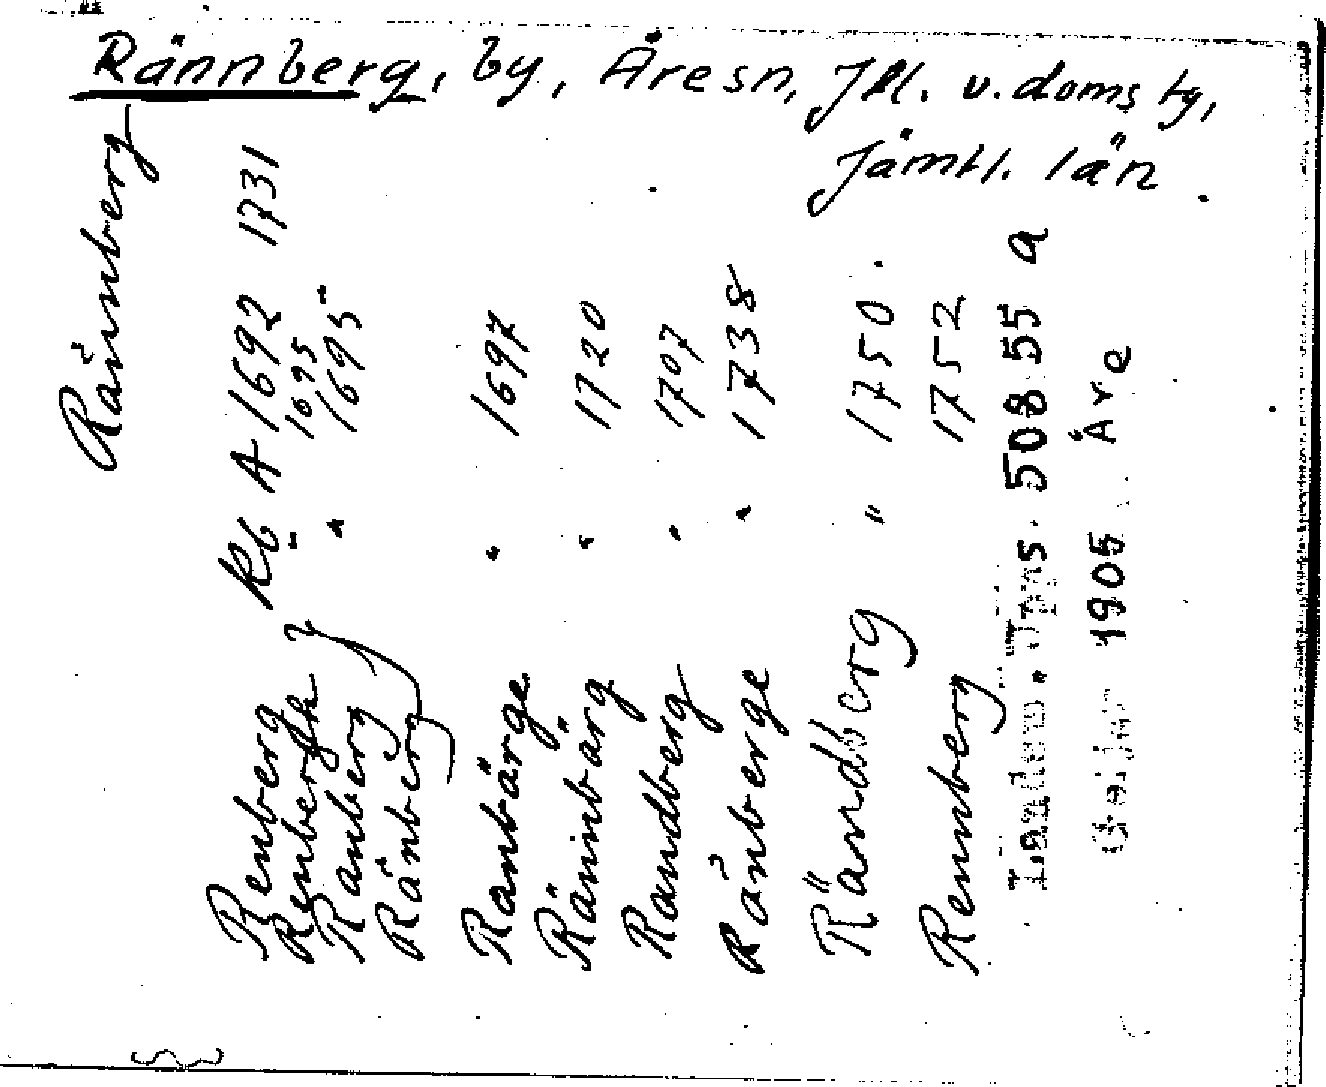 Rännberg, by, Åresn, Jtl. v. doms tg,
Jämtl. län.
Rånnberg
Renberg Kb A 1692 1731
Renbergh " 1695
Ranberg " 1695
Rånberg
Ranbärge " 1697
Räninbärg " 1720
Randberg " 1707
Rånberge " 1738
Rändberg " 1750
Rennberg 1752
Landsm. Upps. 508 55 a
1905 Åre